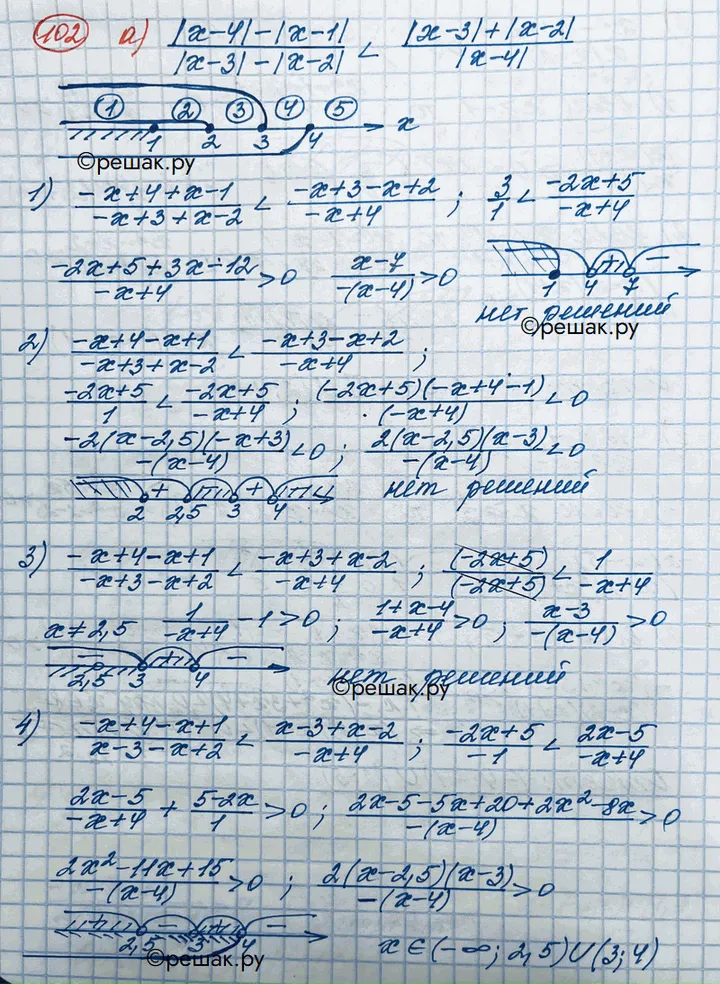 102 а) |x-4|-|x-1| / |x-3|-|x-2| < |x-3|+|x-2| / |x-4|
1 2 3 4 5
1 2 3 4 x
©решак.ру
1) -x+4+x-1 / -x+3+x-2 < -x+3-x+2 / -x+4 ; 3/1 < -2x+5 / -x+4
-2x+5+3x-12 / -x+4 > 0 x-7 / -(x-4) > 0 - + -
1 4 7
нет решений
©решак.ру
2) -x+4-x+1 / -x+3+x-2 < -x+3-x+2 / -x+4 ;
-2x+5 / 1 < -2x+5 / -x+4 ; (-2x+5)(-x+4-1) / (-x+4) < 0
-2(x-2,5)(-x+3) / -(x-4) < 0 ; 2(x-2,5)(x-3) / -(x-4) < 0
+ - + - нет решений
2 2,5 3 4
3) -x+4-x+1 / -x+3-x+2 < -x+3+x-2 / -x+4 ; (-2x+5) / (-2x+5) < 1 / -x+4
x≠2,5 1 / -x+4 - 1 > 0 ; 1+x-4 / -x+4 > 0 ; x-3 / -(x-4) > 0
- + -
2,5 3 4 нет решений
©решак.ру
4) -x+4-x+1 / x-3-x+2 < x-3+x-2 / -x+4 ; -2x+5 / -1 < 2x-5 / -x+4
2x-5 / -x+4 + 5-2x / 1 > 0 ; 2x-5-5x+20+2x²-8x / -(x-4) > 0
2x²-11x+15 / -(x-4) > 0 ; 2(x-2,5)(x-3) / -(x-4) > 0
+ - + -
2,5 3 4 x∈(-∞; 2,5)∪(3; 4)
©решак.ру